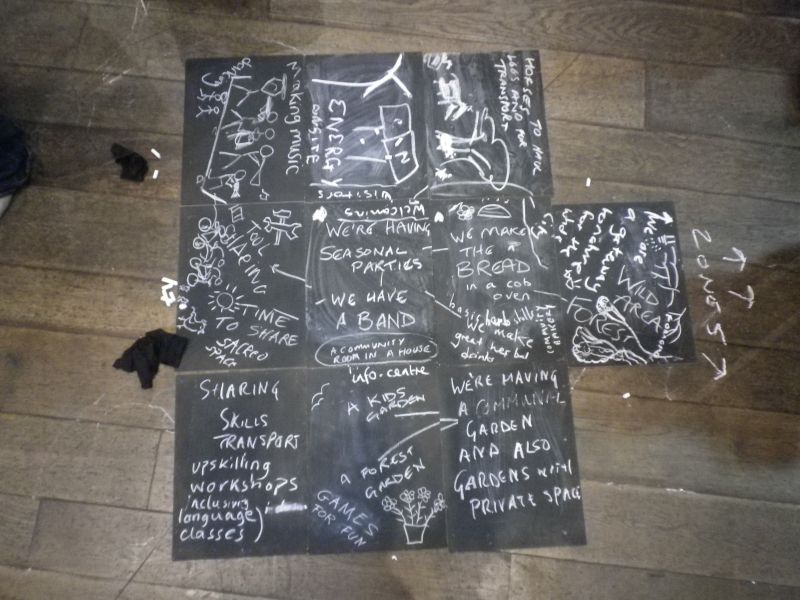 making music
dancing
ENERGY
ONSITE
HORSES TO HAUL
LOGS AND FOR
TRANSPORT
TOOL
SHARING
TIME
TO SHARE
SACRED
SPACE
Welcoming
visitors
WE'RE HAVING
SEASONAL
PARTIES
WE HAVE
A BAND
A COMMUNITY
ROOM IN A HOUSE
WE MAKE
THE
BREAD
in a cob
oven
basic herb skills
We make
great herbal
drinks
COMMUNITY
BAKERY
We are
a gateway
for the
WILD
AREA
ZONE 5
SHARING
SKILLS
TRANSPORT
upskilling
workshops
inclusing
language)
classes)
info-centre
A KIDS
GARDEN
A FOREST
GARDEN
GAMES
FOR FUN
WE'RE HAVING
A COMMUNAL
GARDEN
AND ALSO
GARDENS WITH
PRIVATE SPACE